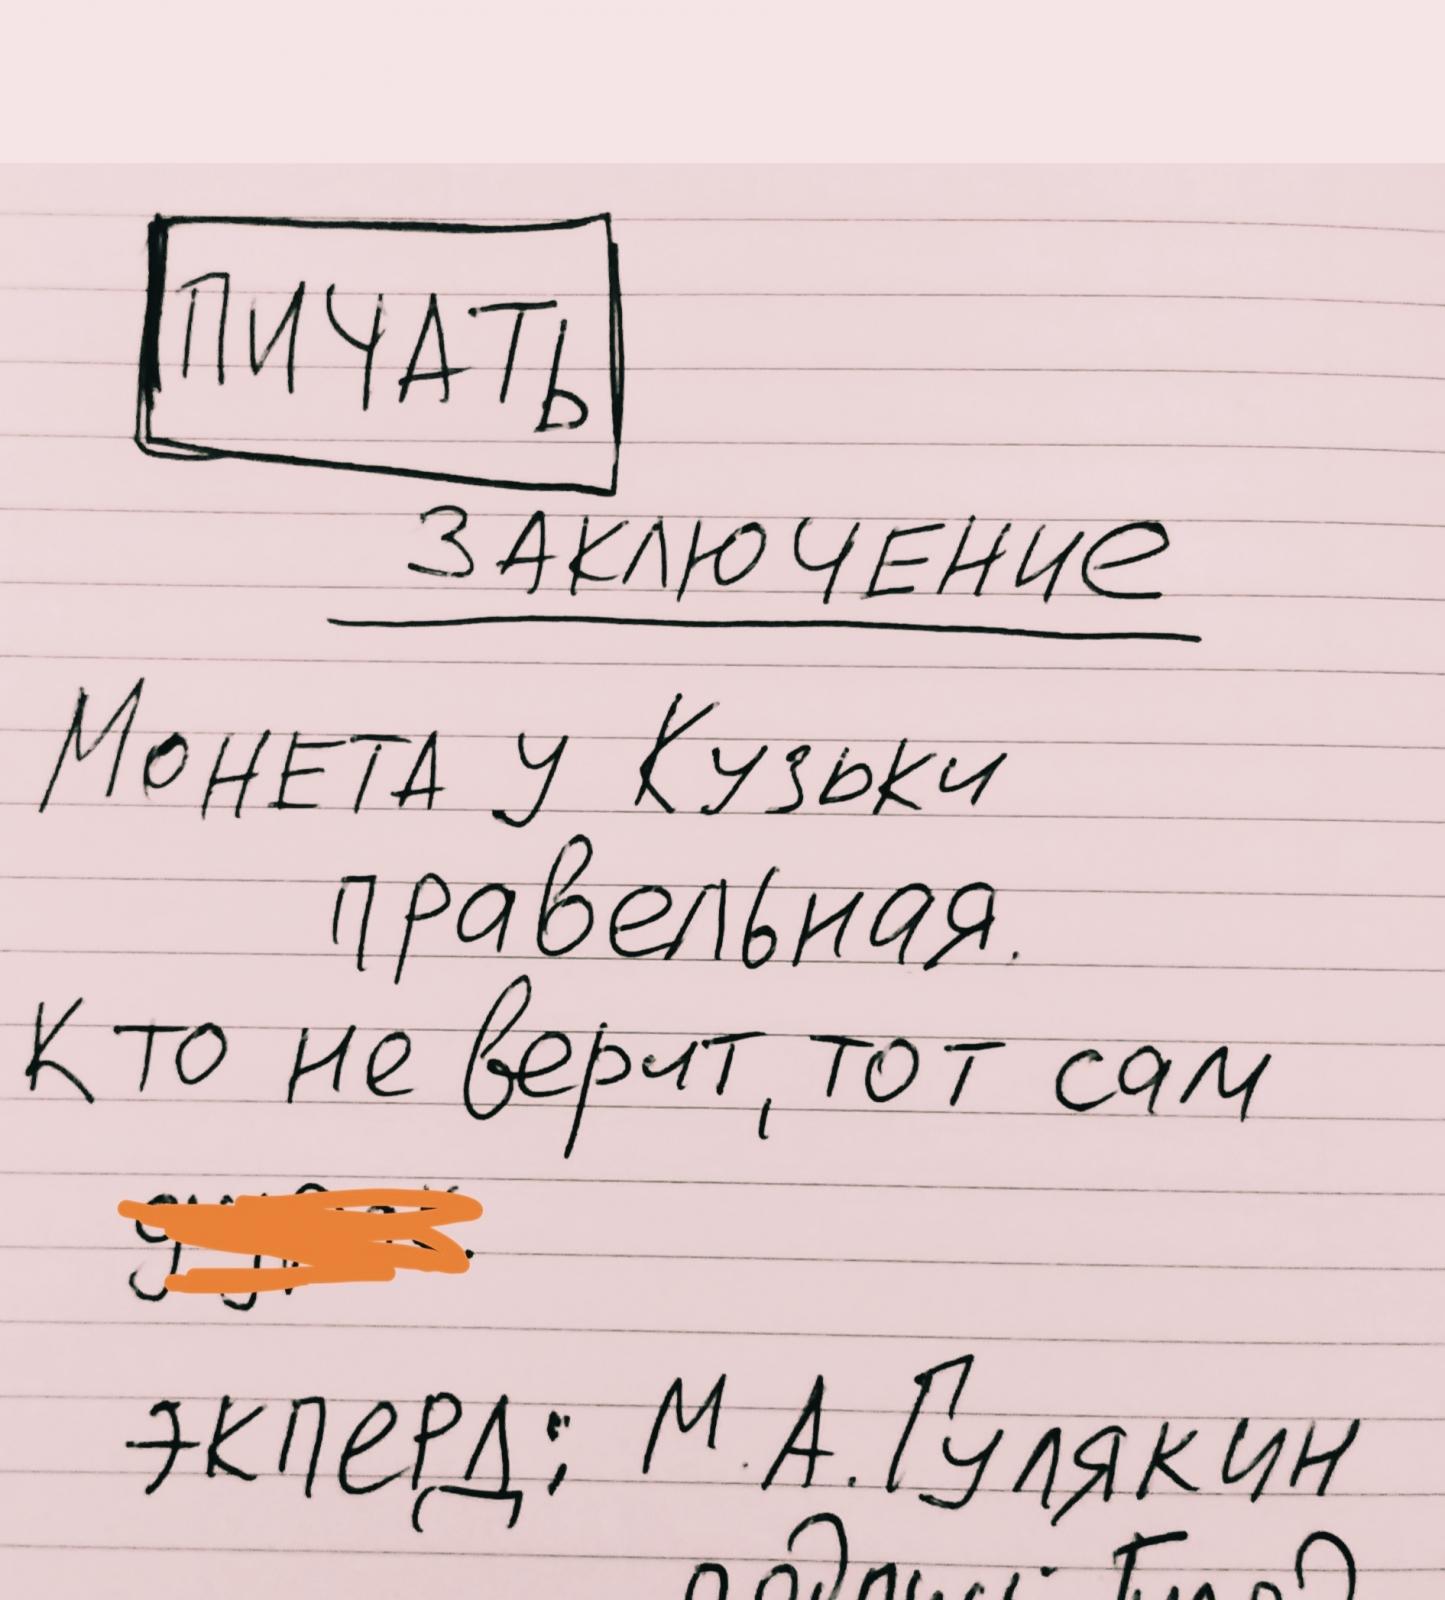 ПИЧАТЬ
ЗАКЛЮЧЕНИЕ
МОНЕТА У Кузьки
правельная.
Кто не верит, тот сам
экперд: М.А.Гулякин